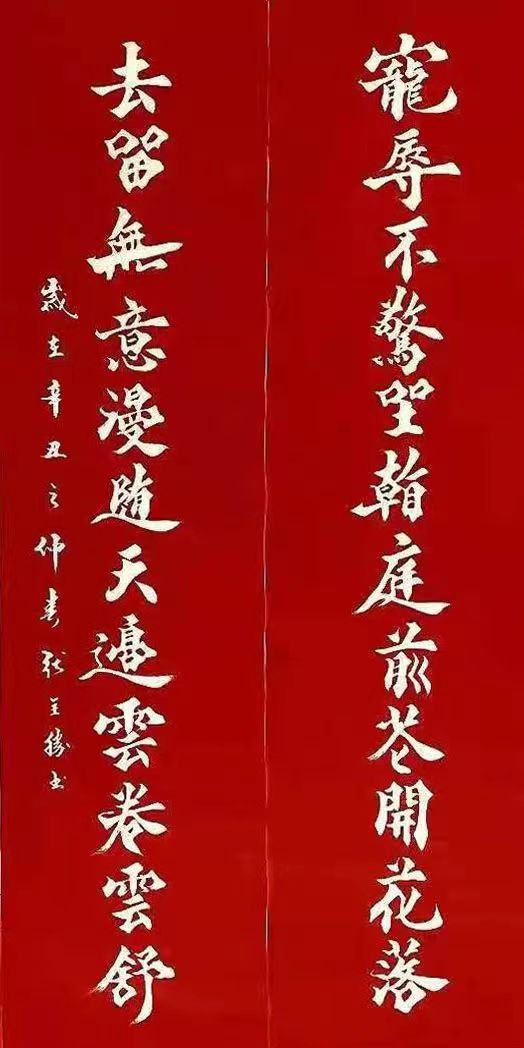 寵辱不驚坐看庭前花開花落
去留無意漫隨天邊雲卷雲舒
歲在辛丑之仲春